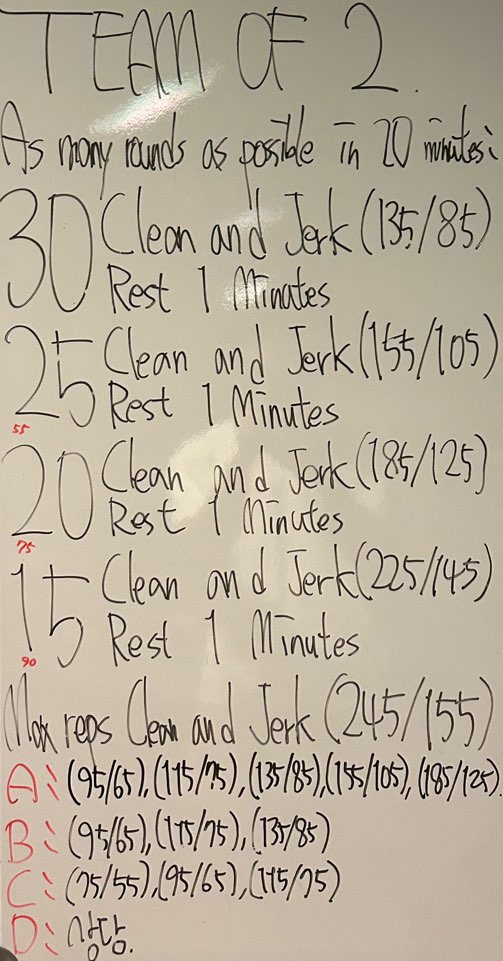 TEAM OF 2.
As many rounds as possible in 20 minutes:
30 Clean and Jerk (135/85)
Rest 1 Minutes
25 Clean and Jerk (155/105)
Rest 1 Minutes
55
20 Clean and Jerk (185/125)
Rest 1 Minutes
75
15 Clean and Jerk (225/145)
Rest 1 Minutes
90
Max reps Clean and Jerk (245/155)
A: (95/65), (115/75), (135/85), (155/105), (185/125).
B: (95/65), (115/75), (135/85)
C: (75/55), (95/65), (115/75)
D: 상당.